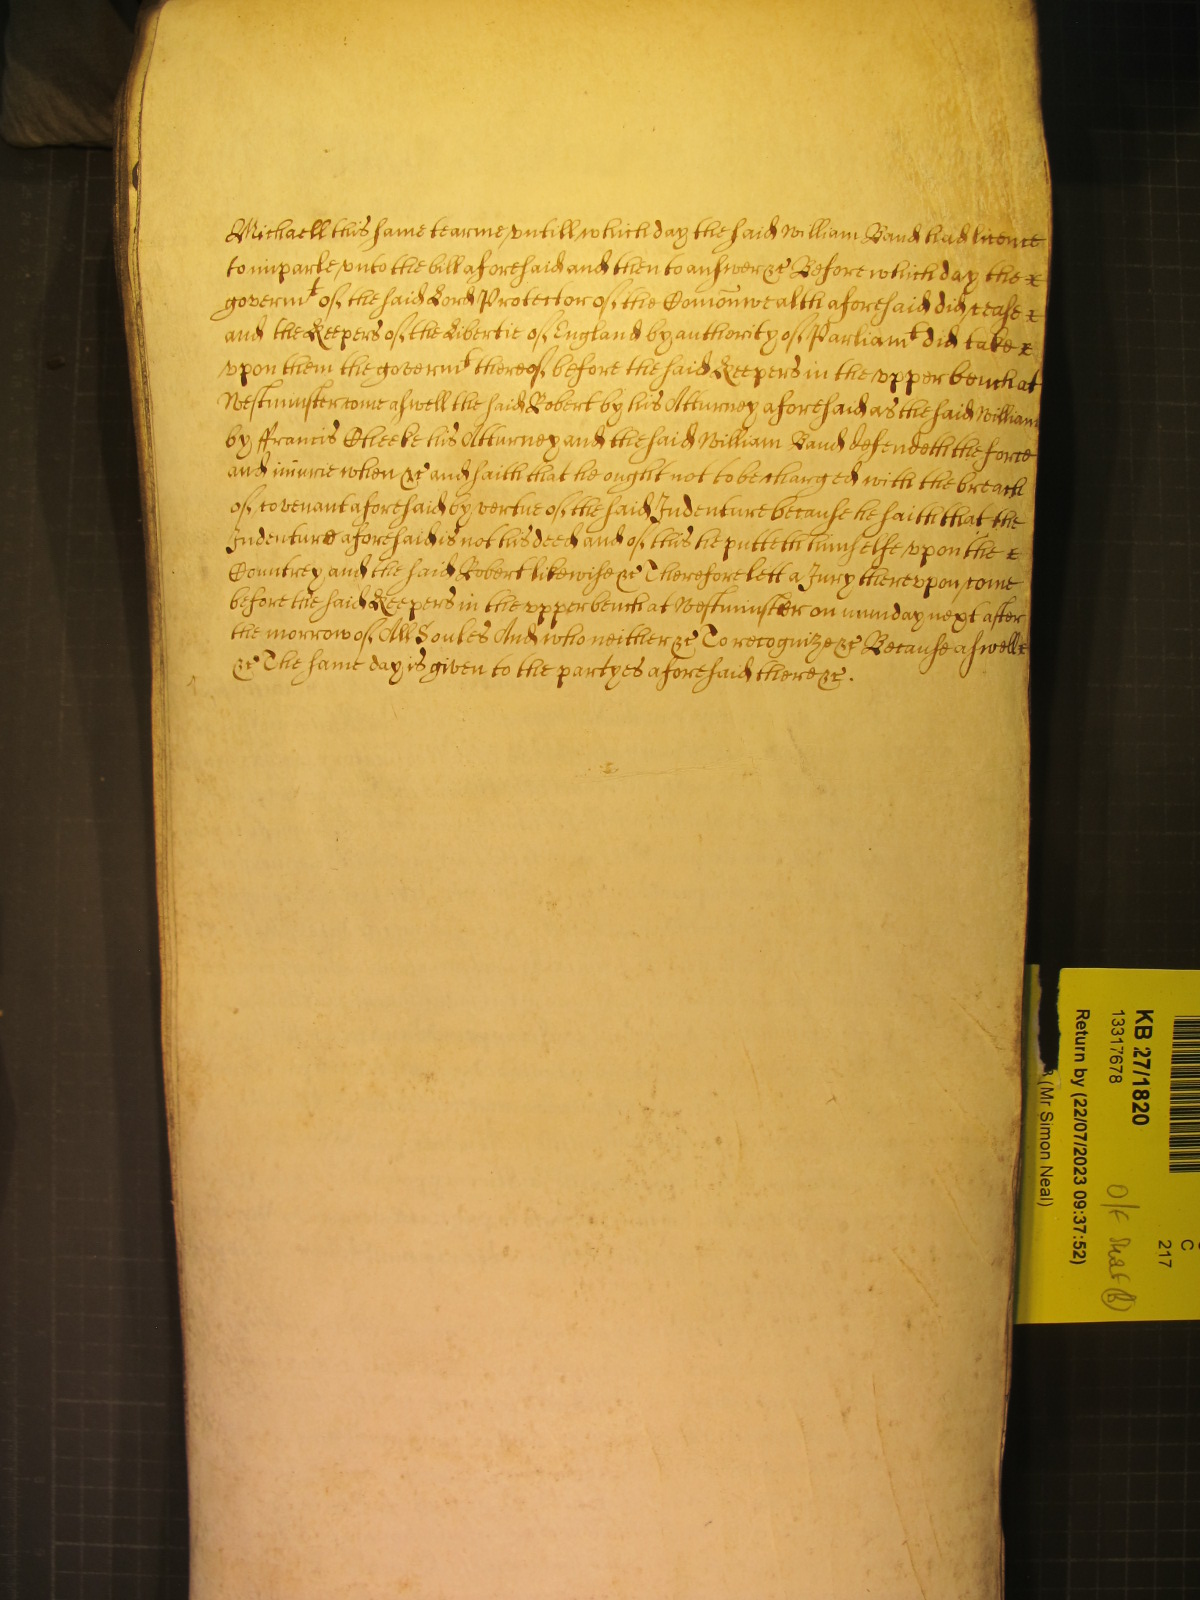 Michaell this same tearme untill which day the said William Band had licence
to imparle unto the bill aforesaid and then to answer &c Before which day the
governmt of the said Lord Protector of the Comonwealth aforesaid did cease
and the Keepers of the Libertie of England by authority of Parliamt did take
upon them the governmt thereof before the said Keepers in the upper bench at
Westminster come aswell the said Robert by his Atturney aforesaid as the said William
by ffrancis Cheeke his Atturney and the said William Band defendeth the force
and iniurie when &c and saith that he ought not to be charged with the breach
of covenant aforesaid by vertue of the said Indenture because he saith that the
Indenture aforesaid is not his deed and of this he putteth himselfe upon the
Countrey and the said Robert likewise &c Therefore lett a Jury thereupon come
before the said Keepers in the upper bench at Westminster on munday next after
the morrow of All Soules And who neither &c To recognize &c Because aswell
&c The same day is given to the partyes aforesaid there &c.
KB 27/1820
13317678
Return by (22/07/2023 09:37:52)
(Mr Simon Neal)
C
217
O/F